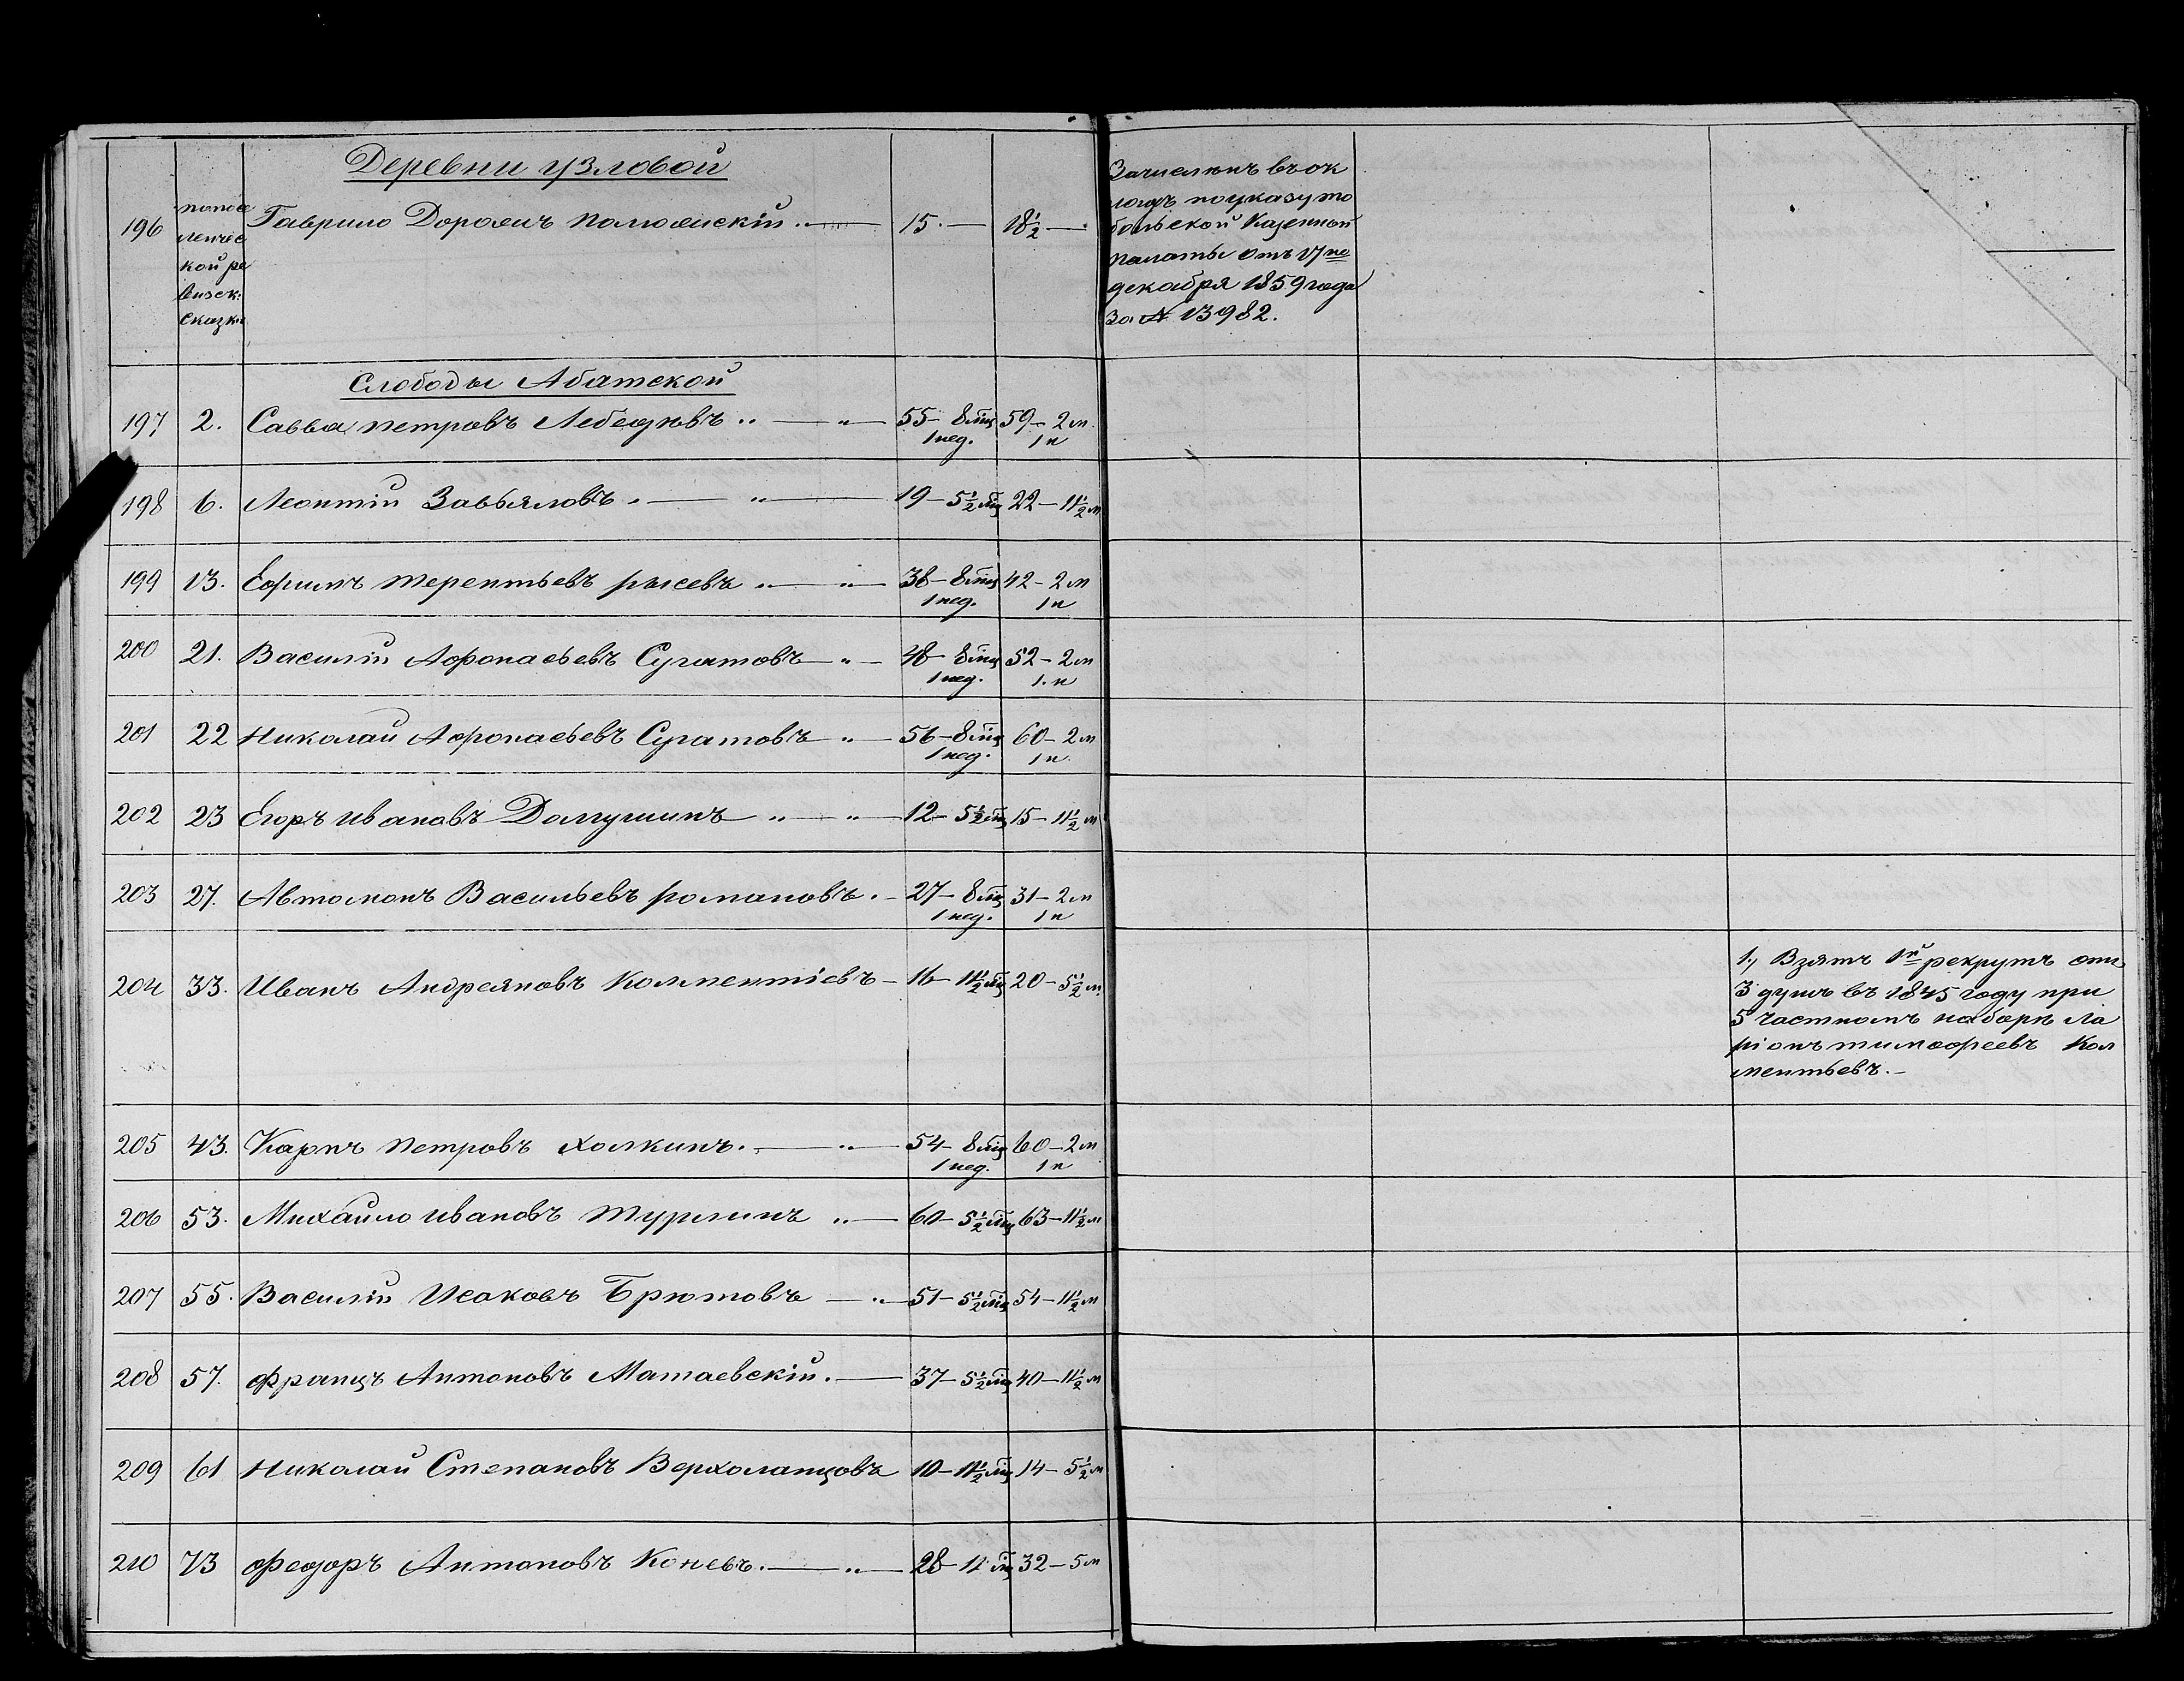 Деревни узловой
196 попосе Гаврило Дорофеичъ 15.— 18½—
ленчес
кой ре
визск:
сказки
Зачисленъ въ ок
ладъ по указу то
больской Казенной
палаты отъ 17го
декабря 1859 года
за № 13982.
Слободы Абатской
197 2. Савва петровъ Лебедевъ „ — „ — 55— 8 мц 59— 2 м.
1 нед. 1 н
198 6. Леонтій Завьяловъ . — „ — 19— 5½ мц 22— 11½ м
199 13. Ефимъ терентьевъ рысевъ „ — „ — 38— 8 мц 42— 2 м
1 нед. 1 н
200 21. Василій Афонасьевъ Сугатовъ — „ — 48— 8 мц 52— 2 м
1 нед. 1. н
201 22 Николай Афонасьевъ Сугатовъ „ — 56— 8 мц 60— 2 м
1 нед. 1 н.
202 23 Егоръ ивановъ Долгушинъ „ — „ — 12— 5½ мц 15— 11½ м
203 27. Автомонъ Васильевъ романовъ . — 27— 8 мц 31— 2 м
1 нед. 1 н
204 33. Иванъ Андреяновъ Колментіевъ — 16— 11½ мц 20— 5½ м.
1, Взятъ 1й рекрутъ отъ
3 душъ въ 1845 году при
5 частномъ наборѣ Ла
ріонъ тимофеевъ Кол
ментьевъ.—
205 43. Карпъ петровъ холкинъ. — „ — 54— 8 мц 60— 2 м
1 нед. 1 н
206 53. Михайло ивановъ „ — 60— 5½ мц 63— 11½ м
207 55. Василій Исаковъ Брютовъ — „ — 51— 5½ мц 54— 11½ м
208 57. францъ Антоновъ Матаевскій. — 37— 5½ мц 40— 11½ м
209 61 Николай Степановъ Верхоланцовъ 10— 11½ мц 14— 5½ м
210 73 федоръ Антоновъ Коневъ. — „ — 28— 11 мц 32— 5 м